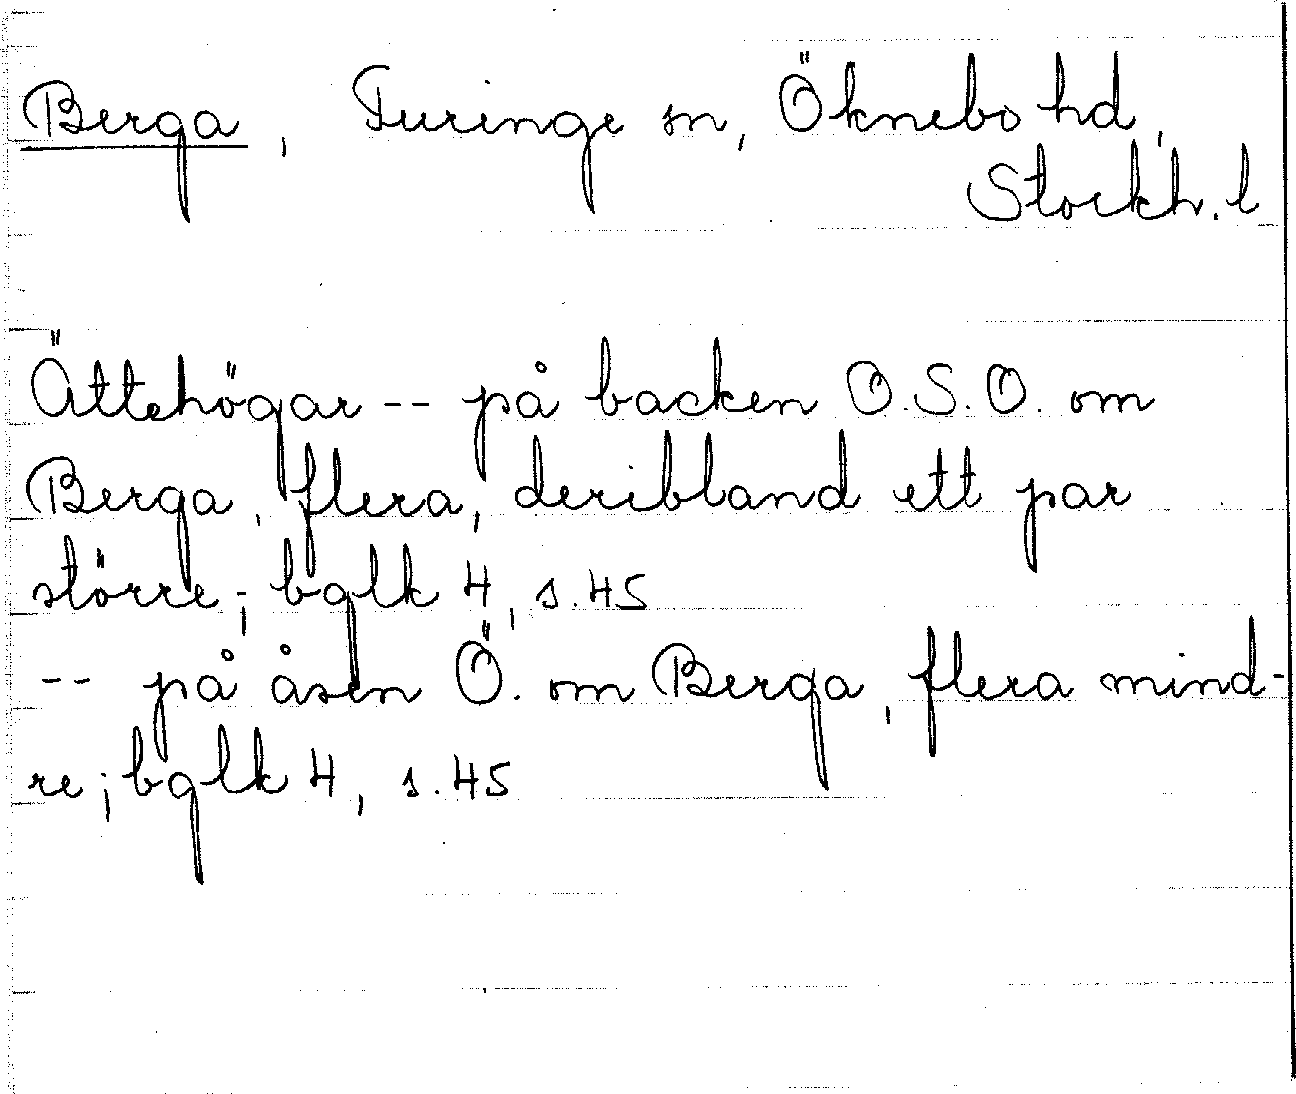 Berga, Turinge sn, Öknebo hd,
Stockh. l
Ättehögar -- på backen O.S.O. om
Berga, flera, deribland ett par
större; bglk 4, s.45
-- på åsen Ö. om Berga, flera mind-
re; bglk 4, s.45